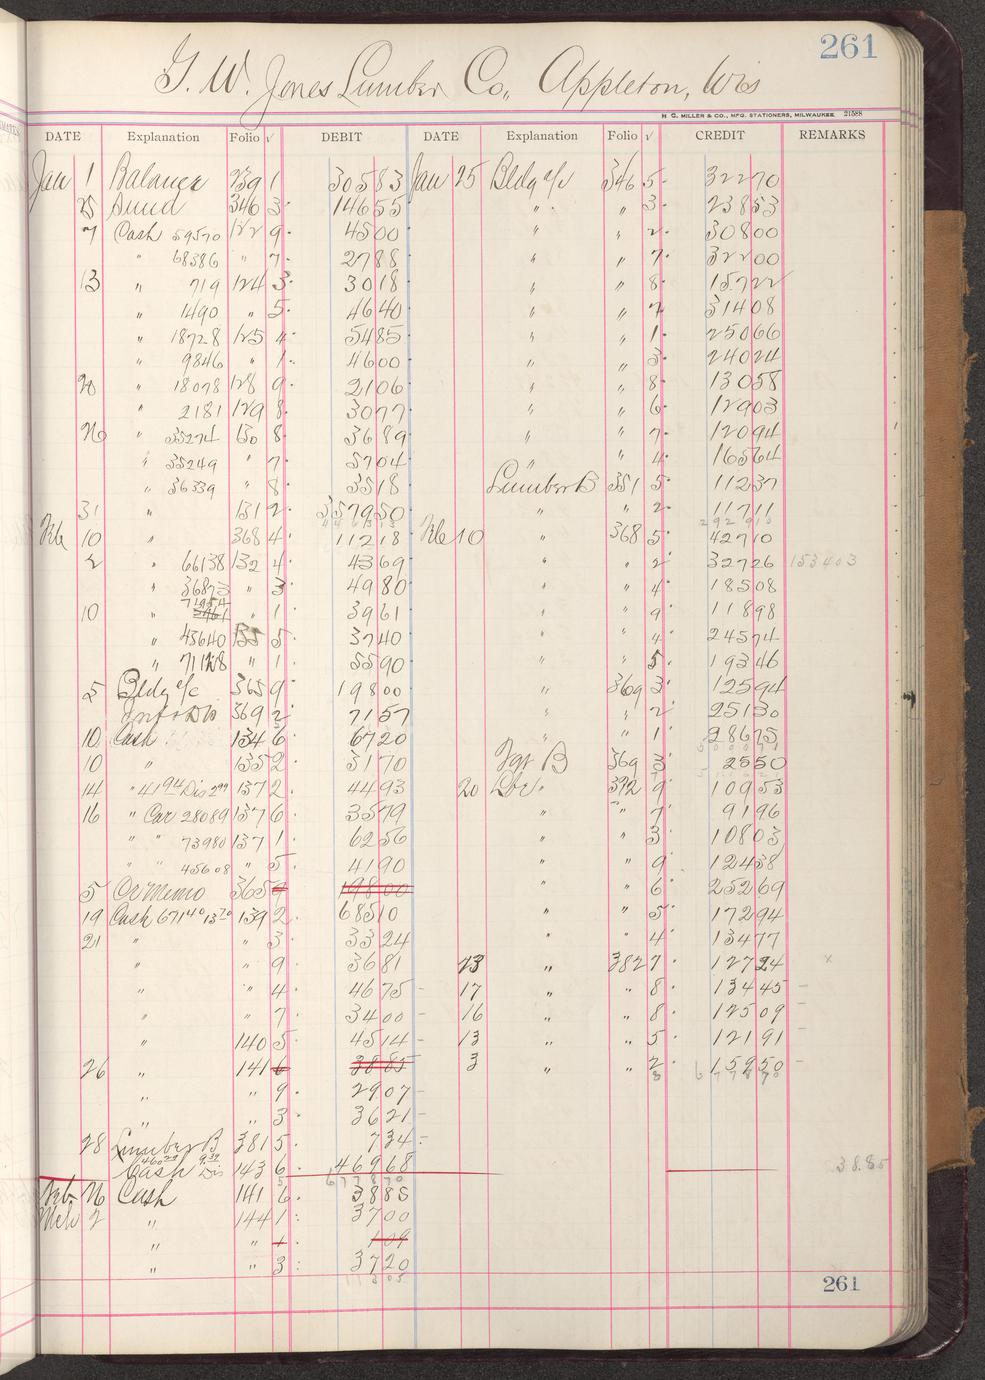 261
G. W. Jones Lumber Co., Appleton, Wis
H. G. MILLER & CO., MFG. STATIONERS, MILWAUKEE 21588
DATE Explanation Folio √ DEBIT DATE Explanation Folio √ CREDIT REMARKS
Jan 1 Balance 239 1 305 83 Jan 25 Bldg a/c 346 5 322 70
25 Sund 346 3 146 55 " " 3 238 53
7 Cash 59570 122 9 45 00 " " 2 308 00
" 68386 " 7 27 88 " " 7 322 00
13 " 719 124 3 30 18 " " 8 157 22
" 1490 " 5 46 40 " " 7 314 08
" 18728 125 4 54 85 " " 1 250 66
" 9846 " 1 46 00 " " 3 240 24
20 " 18078 128 9 21 06 " " 8 130 58
" 2181 129 8 30 77 " " 6 129 03
26 " 35274 130 8 36 89 " " 7 120 94
" 35249 " 7 57 04 " " 4 165 64
" 36339 " 8 35 18 Lumber B 351 5 112 37
31 " 131 2 3579 50 " " 2 117 11
Feb 10 " 368 4 112 18 Feb 10 " 368 5 427 10
2 " 66138 132 4 43 69 " " 2 327 26 153403
" 36873 " 3 49 80 " " 4 185 08
10 " 71954 " 1 39 61 " " 9 118 98
" 43640 135 5 37 40 " " 4 245 74
" 71128 " 1 55 90 " " 5 193 46
5 Bldg a/c 365 9 198 00 " 369 3 125 94
Int & Dis 369 2 71 57 " " 2 251 30
10 Cash 134 6 67 20 " " 1 286 75
10 " 135 2 31 70 B 369 3 25 50
14 " 41 94 Dis 2 99 137 2 44 93 20 Lbr " 372 9 109 53
16 " Car 28089 137 6 35 79 " " 7 91 96
" " 73980 137 1 62 56 " " 3 108 03
" " 45608 " 5 41 90 " " 9 124 38
5 Cr Memo 365 9 198 00 " " 6 252 69
19 Cash 671 40 13 70 139 2 685 10 " " 5 172 94
21 " " 3 33 24 " " 4 134 77
" " 9 36 81 23 " 382 7 127 24 x
" " 4 46 75 17 " " 8 134 45
" " 7 34 00 16 " " 8 125 09
" 140 5 45 14 13 " " 5 121 91
26 " 141 6 38 85 3 " " 2 159 50
" " 9 29 07 677870
" " 3 36 21
28 Lumber B 381 5 7 34
Cash 460 29 9 39 Dis 143 6 469 68 38.85
677870
Feb 26 Cash 141 6 38 85
Mch 2 " 144 1 37 00
" " 1 1 09
" " 3 37 20
11305
261